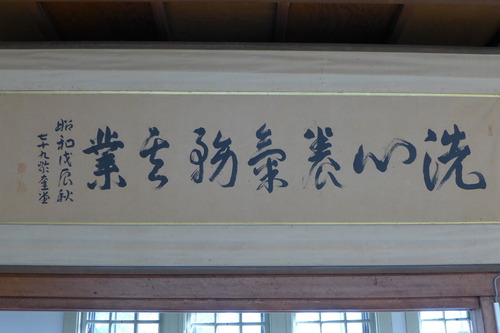 洗心養氣務其業
昭和戊辰秋
七十九叟奎堂